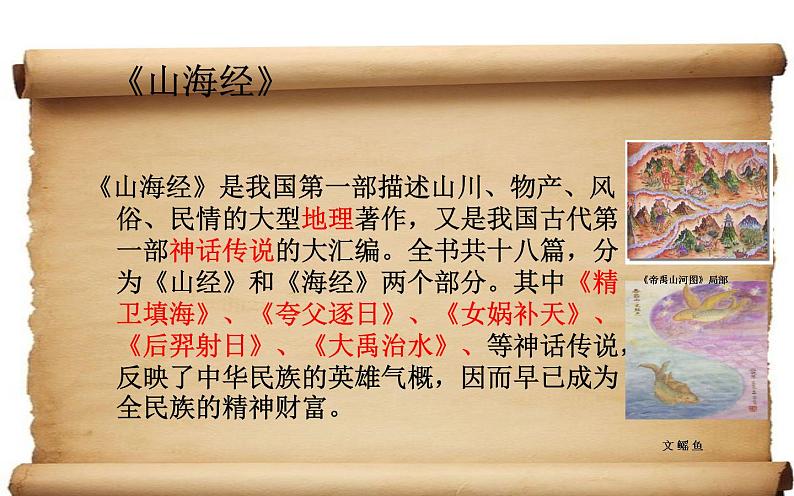 《山海经》
《山海经》是我国第一部描述山川、物产、风
俗、民情的大型地理著作，又是我国古代第
一部神话传说的大汇编。全书共十八篇，分
为《山经》和《海经》两个部分。其中《精
卫填海》、《夸父逐日》、《女娲补天》、
《后羿射日》、《大禹治水》、等神话传说，
反映了中华民族的英雄气概，因而早已成为
全民族的精神财富。
《帝禹山河图》局部
文鳐鱼